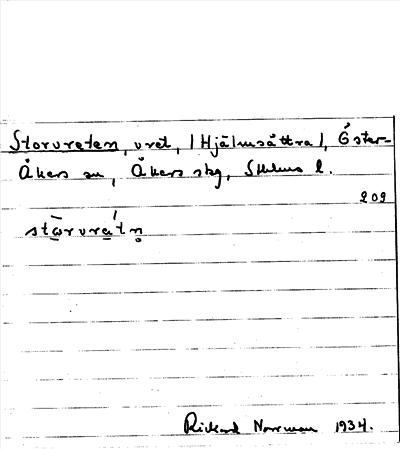 Storvreten, vret, /Hjälmsättra/, Öster-
Åkers sn, Åkers skg, Sthlms l.
209
stōrvrétn̥
Rickard Norrman 1934.